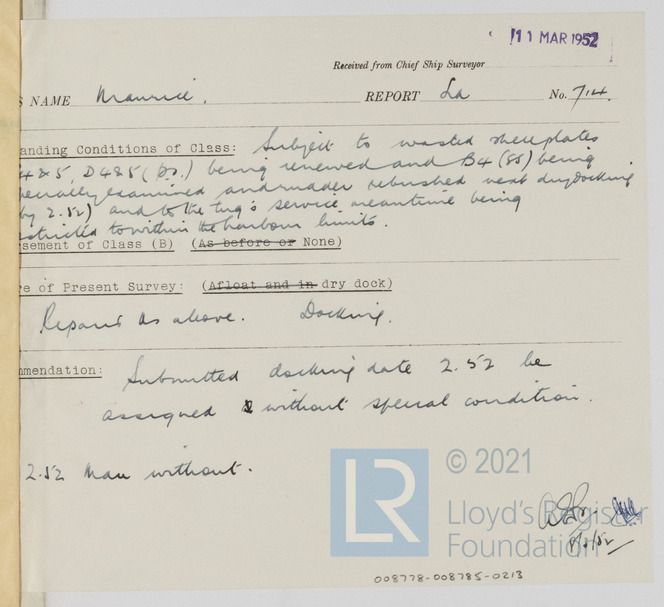 11 MAR 1952
Received from Chief Ship Surveyor
S NAME Maurice. REPORT La No. 714.
anding Conditions of Class: Subject to wasted shellplates
4&5, D4&5 (ps.) being renewed and B4 (ss) being
pecially examined and rudder rebushed next drydocking
by 2.52) and to the tug's service meantime being
stricted to within the harbour limits.
sement of Class (B) (As before or None)
re of Present Survey: (Afloat and in dry dock)
Repairs as above. Docking.
mmendation: Submitted docking date 2.52 be
assigned & without special condition.
2.52 Mau without.
LR
© 2021
Lloyd's Register
Foundation
008778-008785-0213